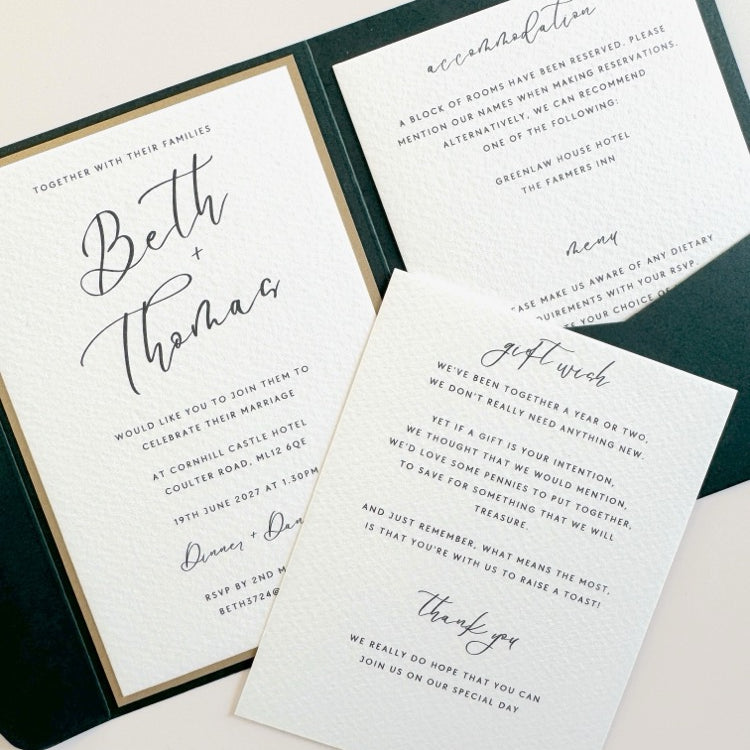 TOGETHER WITH THEIR FAMILIES
Beth
+
Thomas
WOULD LIKE YOU TO JOIN THEM TO
CELEBRATE THEIR MARRIAGE
AT CORNHILL CASTLE HOTEL
COULTER ROAD, ML12 6QE
19TH JUNE 2027 AT 1.30PM
Dinner +
RSVP BY 2ND
accommodation
A BLOCK OF ROOMS HAVE BEEN RESERVED. PLEASE
MENTION OUR NAMES WHEN MAKING RESERVATIONS.
ALTERNATIVELY, WE CAN RECOMMEND
ONE OF THE FOLLOWING:
GREENLAW HOUSE HOTEL
THE FARMERS INN
menu
MAKE US AWARE OF ANY DIETARY
WITH YOUR RSVP.
YOUR CHOICE OF
gift wish
WE'VE BEEN TOGETHER A YEAR OR TWO,
WE DON'T REALLY NEED ANYTHING NEW.
YET IF A GIFT IS YOUR INTENTION,
WE THOUGHT THAT WE WOULD MENTION,
WE'D LOVE SOME PENNIES TO PUT TOGETHER,
TO SAVE FOR SOMETHING THAT WE WILL
TREASURE.
AND JUST REMEMBER, WHAT MEANS THE MOST,
IS THAT YOU'RE WITH US TO RAISE A TOAST!
thank you
WE REALLY DO HOPE THAT YOU CAN
JOIN US ON OUR SPECIAL DAY